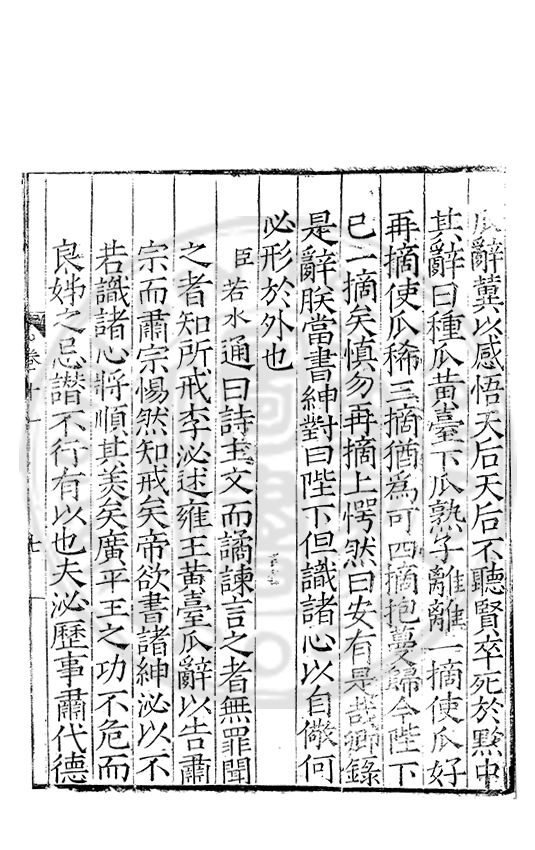 瓜辭冀以感悟天后天后不聽賢卒死於黔中
其辭曰種瓜黃臺下瓜熟子離離一摘使瓜好
再摘使瓜稀三摘猶為可四摘抱蔓歸今陛下
已一摘矣慎勿再摘上愕然曰安有是哉卿錄
是辭朕當書紳對曰陛下但識諸心以自儆何
必形於外也
臣若水通曰詩主文而譎諫言之者無罪聞
之者知所戒李泌述雍王黃臺瓜辭以告肅
宗而肅宗惕然知戒矣帝欲書諸紳泌以不
若識諸心將順其美矣廣平王之功不危而
良娣之忌譖不行有以也夫泌歷事肅代德
卷十一
七